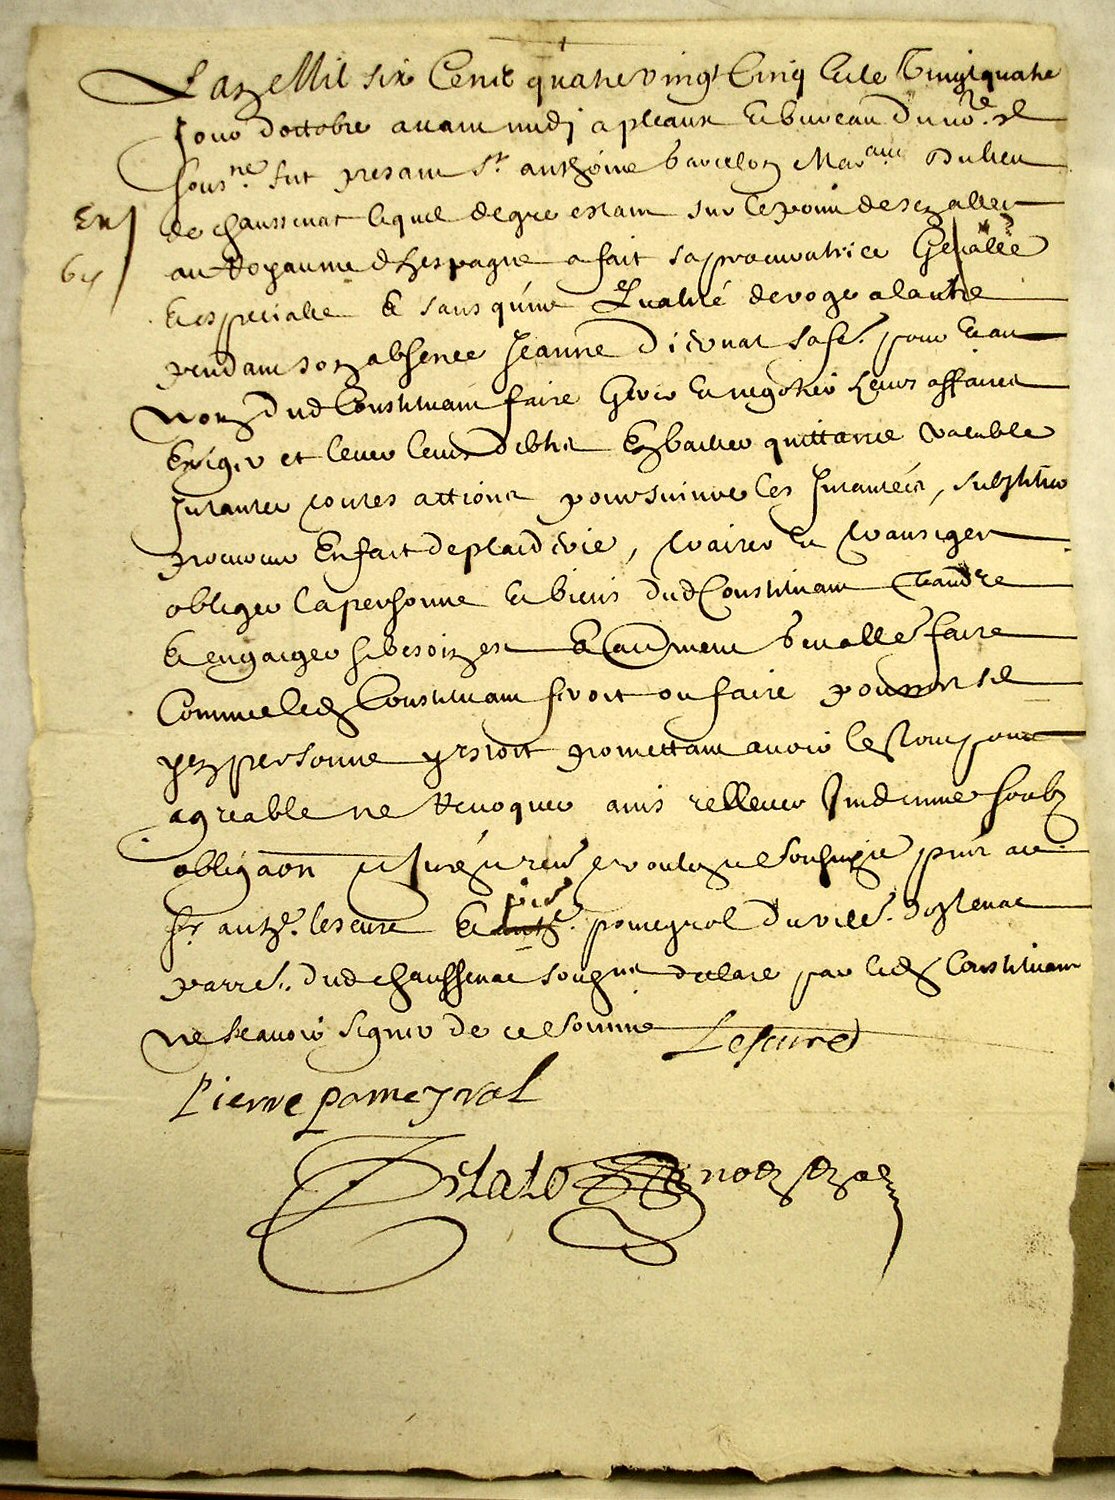 Lan Mil six Cent quatre vingt Cinq et le vingt quatre
Jour doctobre avant midy a pleaux et bureau du no.re rl
sous.ne fut presant s.r anthoine barcelon Mar.ant du lieu
de chaussenat lequel de gre estant sur le point de sen aller
En
au Royaume dhespagne a fait sa procuratrice Genalle
et speciale & sans qune qualité deroge a lautre
pendant son absence Jeanne sa fe. pour et au
nom dud Constituant faire Gerer et negotier leurs affaires
Exiger et lever leurs debtes En bailler quittance valable
Intanter toutes actions poursuivre les Intantées, substituer
procureur En fait de plaidoirie, traiter et transiger
obliger la personne et biens dud Constituant vandre
et engaiger si besoin est & autrement faire
Comme led Constituant feroit ou faire pourroit sil
en personne y estoit promettant avoir le tout pour
agreable ne Revoquer ains rellever Indemne soubz
obligaon et Juré
s.r ant.e lescure et pre. pomeyrol du ville.
parre. dud chaussenac soussignes declare par led Constituant
ne scavoir signer de ce somme
Lescure
Pierre pomeyrol